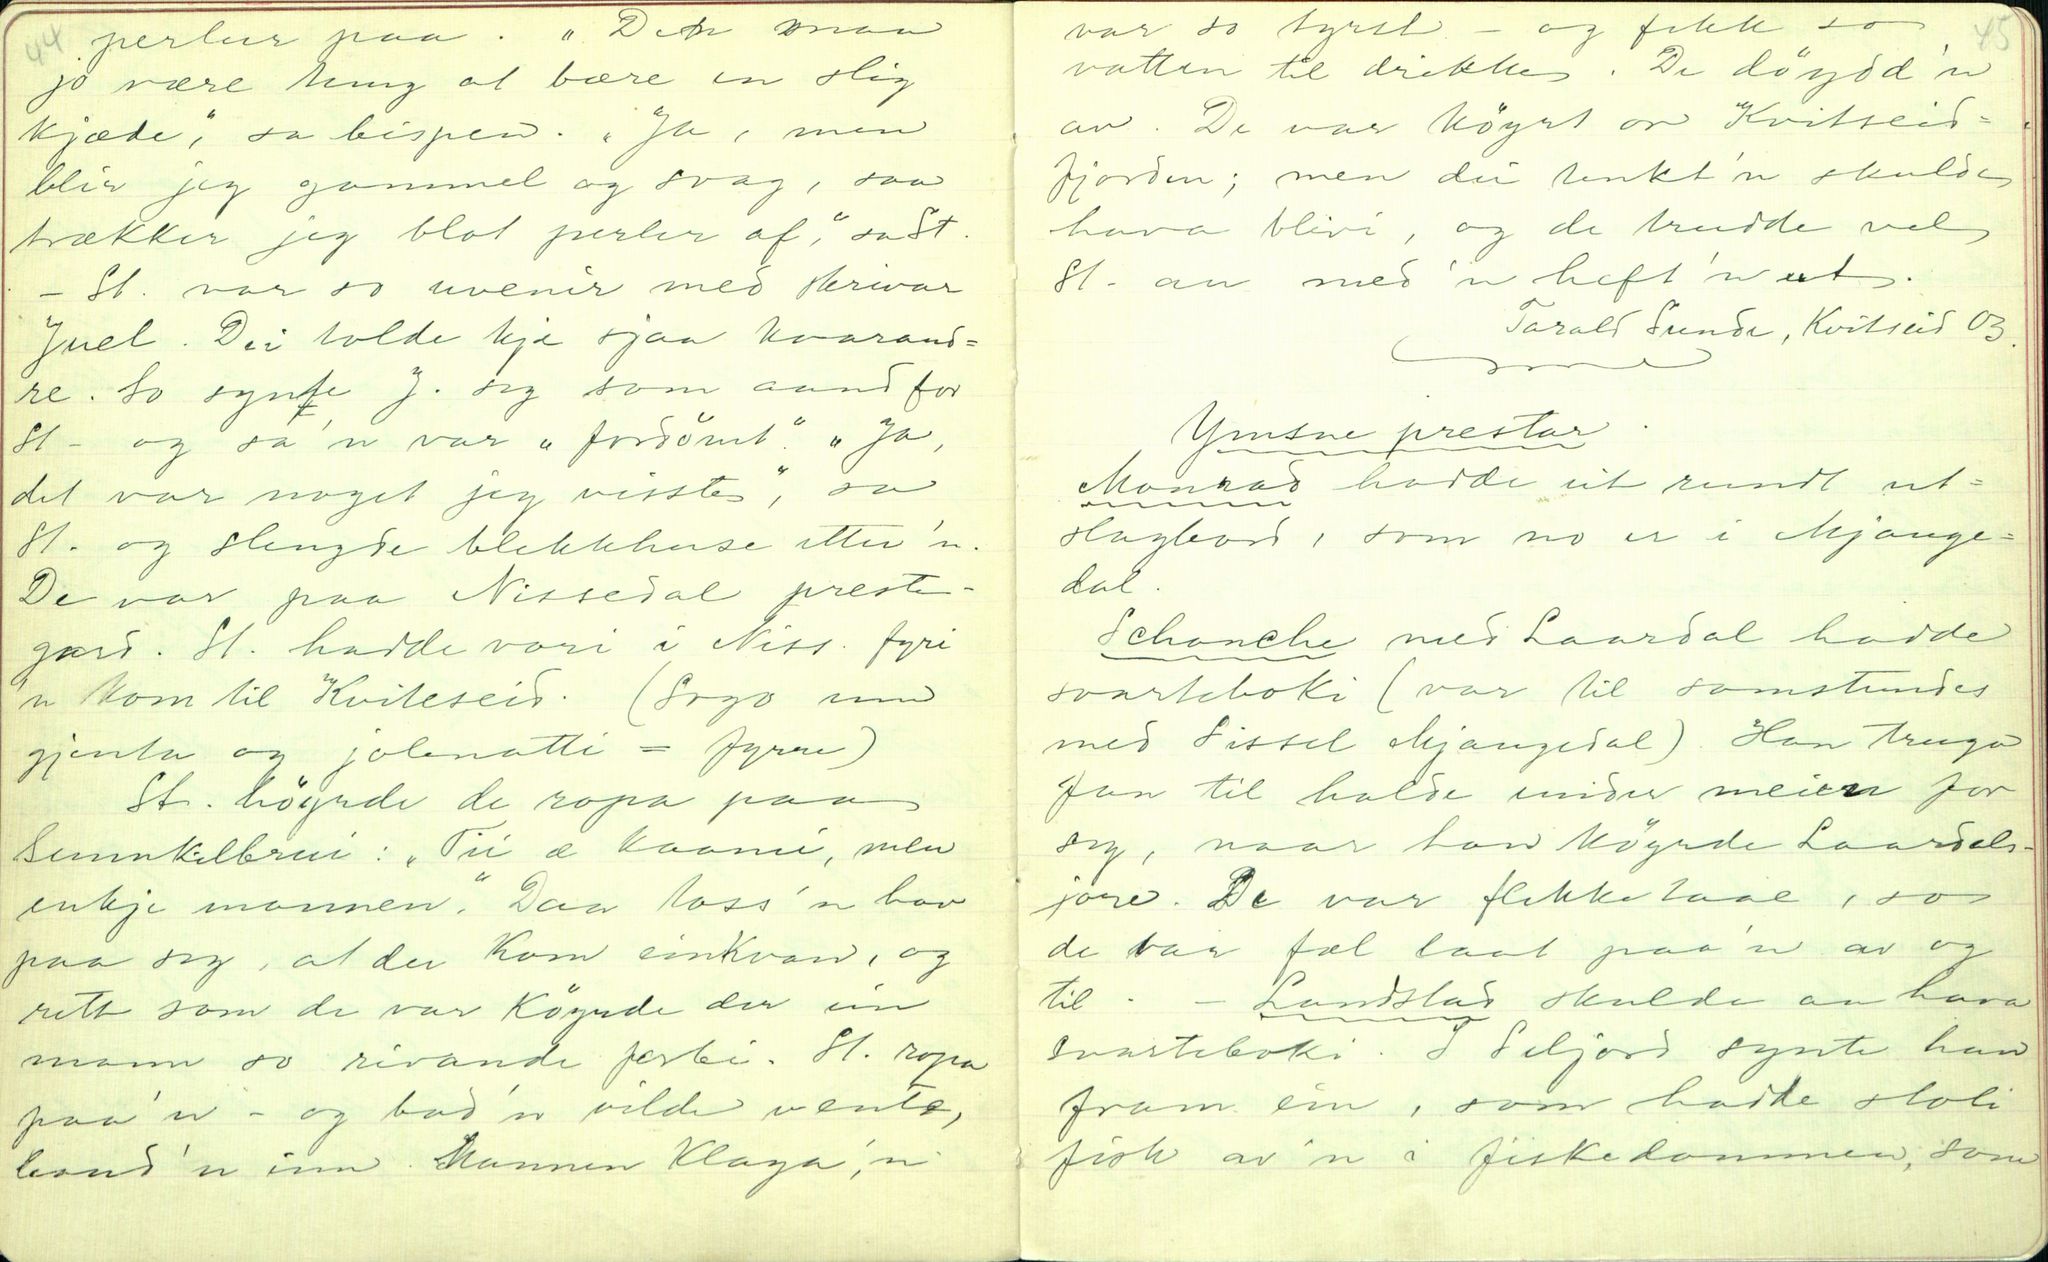 44
perlur paa. "Den maa
jo være tung at bære en slig
kjæde", sa bispen. "Ja, men
blir jeg gammel og svag, saa
trækker jeg blot perler af," sa St.
- St. var so uvenir med skrivar
Juel. Dei tolde kje sjaa kvarand=
re. So synte J. seg som aand for
St - og sa 'n var "fordömt". "Ja,
det var noget jeg visste", sa
St. og slengde blekkhuse etter 'n.
De var paa Nissedal preste-
gard. St. hadde vori i Niss. fyri
'n kom til Kviteseid. (Sogo um
gjenta og jolenatti = fyrre)
St. höyrde de ropa paa
Sunnkilbrui: "Tii æ kaami, men
inkje mannen." Daa toss 'n hav
paa seg, at der kom einkvan, og
rett som de var köyrde der ein
mann so rivande forbi. St. ropa
paa 'n - og bad 'n vilde vente,
baud 'n inn. Mannen klaga, 'n
45
var so tyrst - og fekk so
vatten til drikke. De döydd 'n
av. De var köyrt or Kvitseid=
fjorden; men dei tenkt 'n skulde
hava blivi, og de trudde vel
St. au med 'n heft 'n ut.
Tarald Sunde, Kvitseid 03.
Ymsne prestar.
Monrad hadde eit rundt ut=
slagbord, som no er i Mjange=
dal.
Schanche med Laardal hadde
svarteboki (var til samstundes
med Sissel Mjangedal). Han truga
fan til halde under meien for
seg, naar han köyrde Laardals-
jore. De var flekketaae, so
de var fæl laat paa 'n av og
til. - Landstad skulde au hava
svarteboki. I Seljord synte han
fram ein, som hadde stoli
fisk av 'n i fiskedammen, som